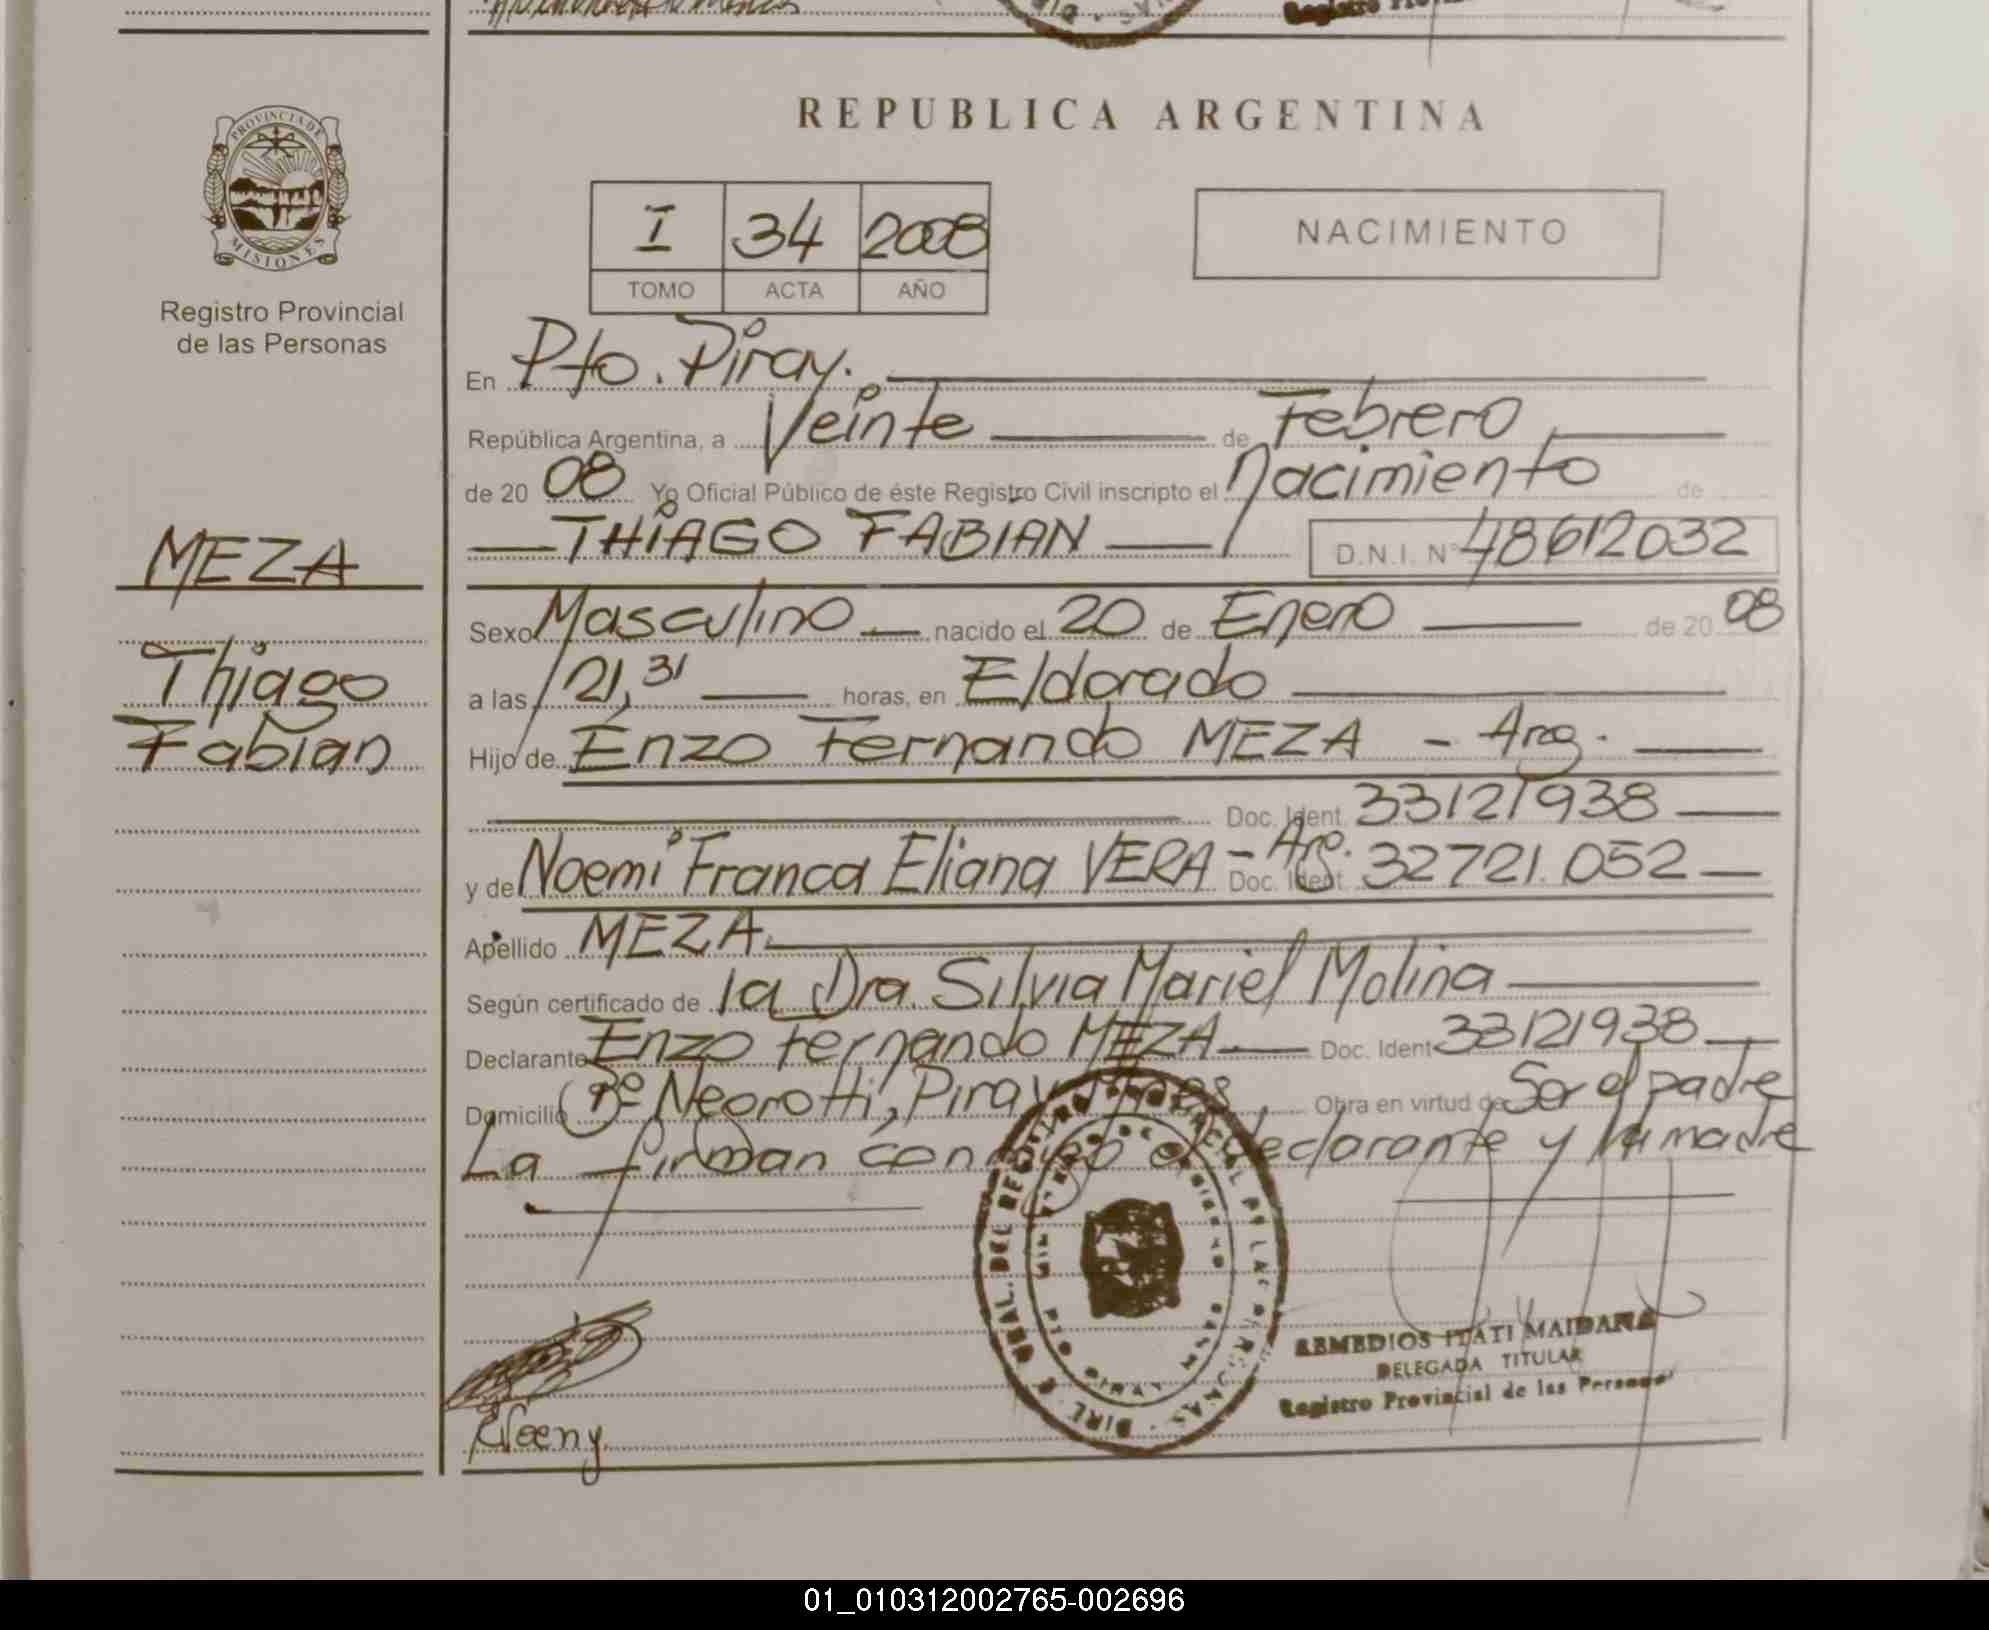 REPUBLICA ARGENTINA
PROVINCIA DE
MISIONES
Registro Provincial
de las Personas
I 34 2008
TOMO ACTA AÑO
NACIMIENTO
En Pto. Piray.
República Argentina, a Veinte de Febrero
de 20 08 Yo Oficial Público de éste Registro Civil inscripto el Nacimiento de
THIAGO FABIAN D.N.I. Nº 48612032
MEZA
Thiago
Fabian
Sexo Masculino nacido el 20 de Enero de 20 08
a las 21,31 horas, en Eldorado
Hijo de Enzo Fernando MEZA - Arg.
Doc. Ident. 33121938
y de Noemi Franca Eliana VERA - Arg. Doc. Ident. 32721.052
Apellido MEZA.
Según certificado de la Dra. Silvia Mariel Molina
Declarante Enzo Fernando MEZA Doc. Ident 33121938
Domicilio Bº Negrotti, Piray Mnes Obra en virtud de Ser el padre
La firman conmigo el declarante y la madre
REMEDIOS ITATI MAIDANA
DELEGADA TITULAR
Registro Provincial de las Personas
01_010312002765-002696